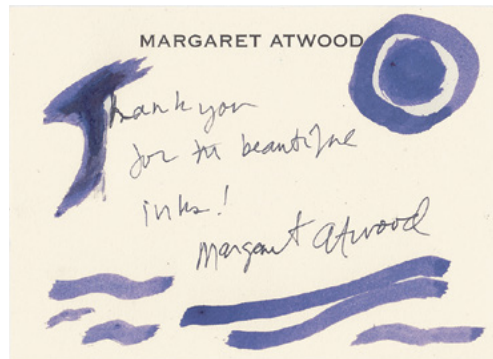 MARGARET ATWOOD
Thank you
for the beautiful
inks!
Margaret Atwood